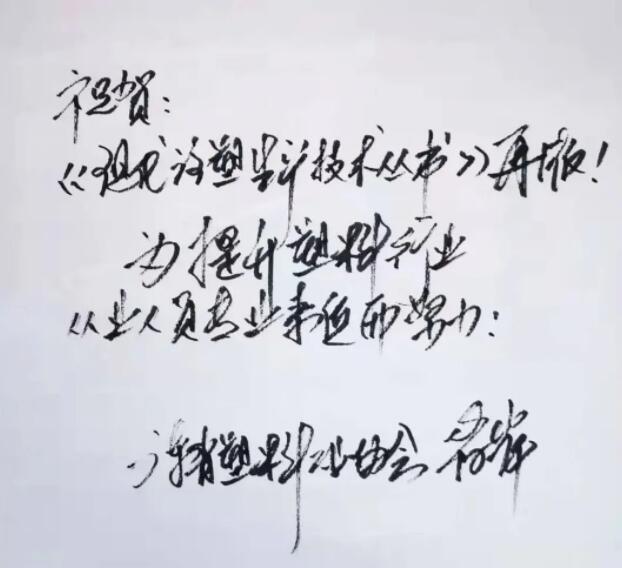 祝贺:
《现代注塑生产技术丛书》再版!
为提升塑料行业
从业人员专业素质而努力:
广东省塑料工业协会 符岸